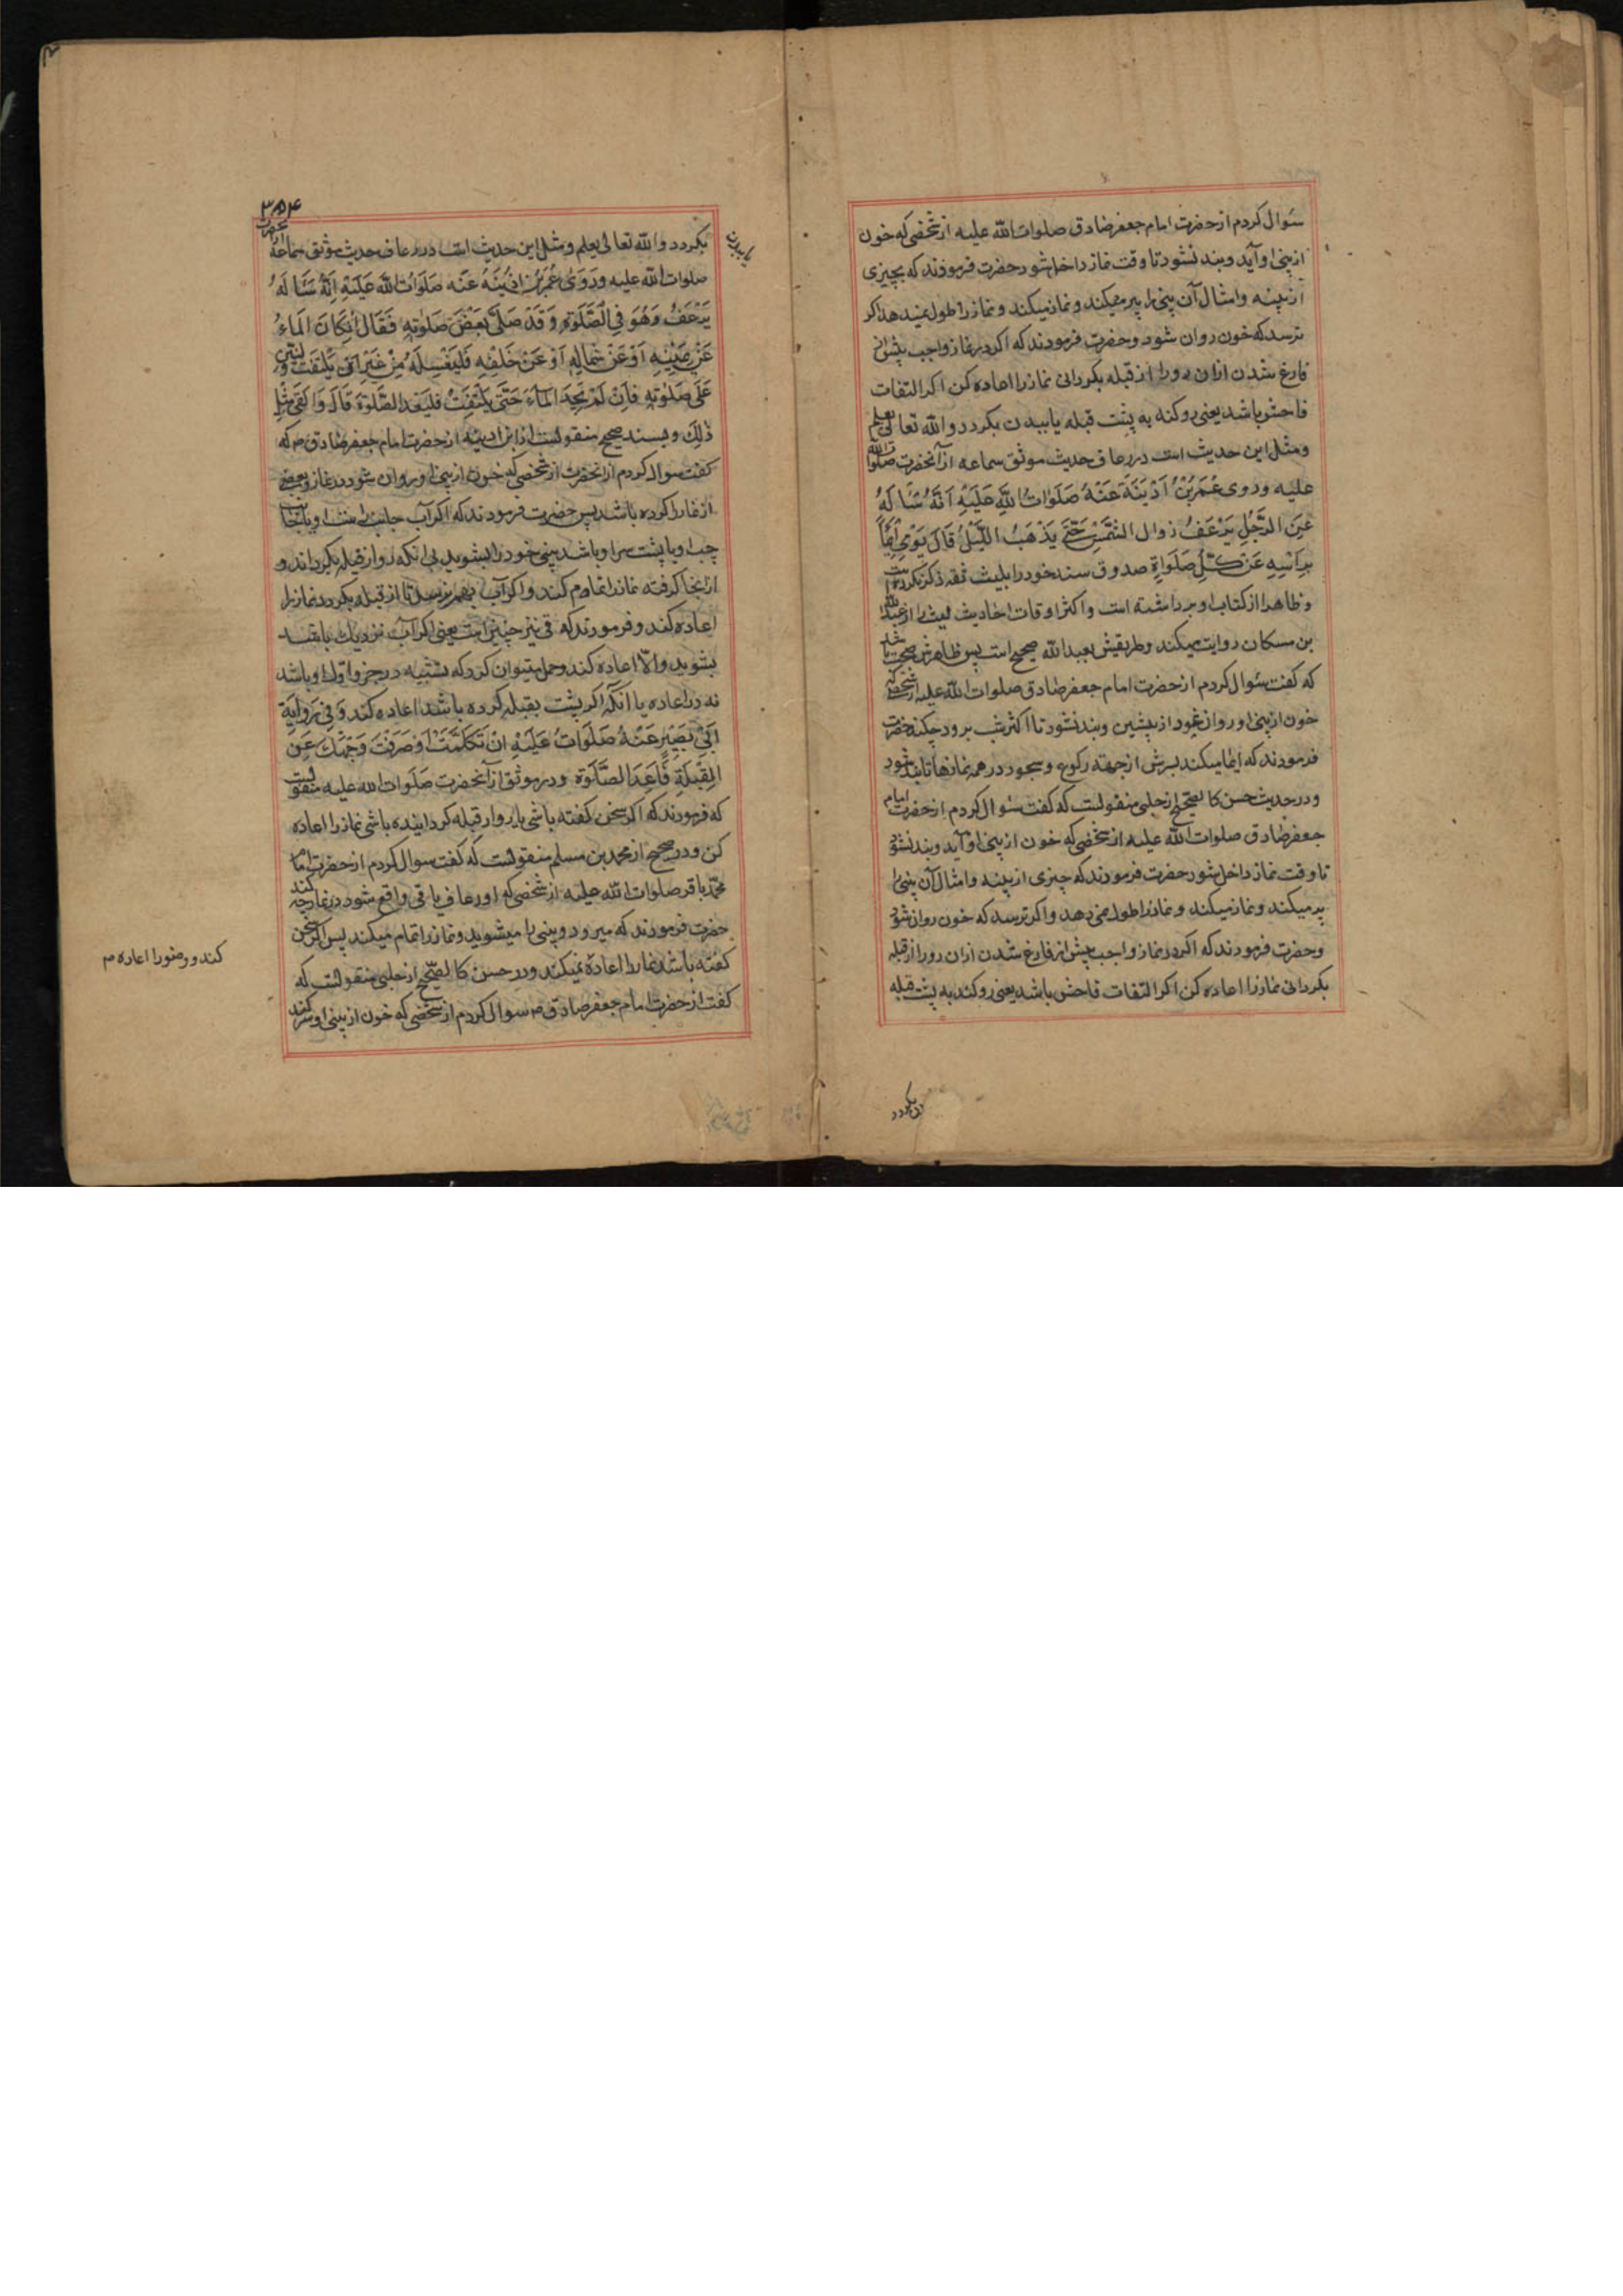 سؤال کردم از حضرت امام جعفر صادق صلوات الله علیه از شخصی که خون
از بینی او آید و بند نشود تا وقت نماز داخل شود حضرت فرمودند که بچیزی
از پنبه و امثال آن بینی را پر میکند و نماز میکند و نماز را طول نمیدهد اکر
ترسد که خون روان شود و حضرت فرمودند که اکر در نماز واجب پیش از
فارغ شدن ازان رو را از قبله بکردانی نماز را اعاده کن اکر التفات
فاحش باشد یعنی رو کند به پشت قبله یا ببدن بکردد والله تعالی یعلم
و مثل این حدیث است در رعاف حدیث موثق سماعه از آنحضرت صلوات الله
علیه وروی عُمَرُبْنُ اُذَیْنَةَ عَنْهُ صَلَوَاتُ اللهِ عَلَیْهِ اَنَّهُ سَاَلَهُ
عَنِ الرَّجُلِ یَرْعَفُ زوال الشَّمْسِ حَتّی یَذْهَبُ اللَّیْلُ قَالَ یُوْمِی اِیْمَاءً
بِرَاْسِهِ عَنْ کُلِّ صَلَوَاةٍ صدوق سند خود را بلیث ثقه ذکر نکرده است
و ظاهرا از کتاب او برداشته است و اکثر اوقات احادیث لیث را از عبدالله
بن مسکان روایت میکند و طریقش بعبدالله صحیح است پس ظاهرش صحت باشد
که کفت سؤال کردم از حضرت امام جعفر صادق صلوات الله علیه از شخصی که
خون از بینی او روان شود از پیشین و بند نشود تا اکثر شب برود چکند حضرت
فرمودند که ایما میکند بسرش از جهة رکوع و سجود در همه نمازها تا بند شود
و در حدیث حسن کالصحیح از حلبی منقولست که کفت سؤال کردم از حضرت امام
جعفر صادق صلوات الله علیه از شخصی که خون از بینی او آید و بند نشود
تا وقت نماز داخل شود حضرت فرمودند که چیزی از پنبه و امثال آن بینی را
پر میکند و نماز میکند و نماز را طول نمی دهد و اکر ترسد که خون روان شود
و حضرت فرمودند که اکر در نماز واجب پیش از فارغ شدن ازان رو را از قبله
بکردانی نماز را اعاده کن اکر التفات فاحش باشد یعنی رو کند به پشت قبله
۳۵۴
یا ببدن
بکردد والله تعالی یعلم و مثل این حدیث است در رعاف حدیث موثق سماعه از حضرت
صلوات الله علیه وَرَوَی عُمَرُبْنُ اُذَیْنَهُ عَنْه صَلَوَاتُ اللهِ عَلَیْهِ اِنَّهُ سَاَلَهُ
یَرْعَفُ وَهُوَ فِی الصَّلَوةِ وَقَدْ صَلّی بَعْضَ صَلوتِهِ فَقَالَ اِنْکَانَ المَاءُ
عَنْ یَمِیْنِهِ اَوْ عَنْ شِمَالِهِ اَوْ عَنْ خَلْفِهِ فَلْیَغْسِلْهُ مِنْ غَیْرِ اَنْ یَلْتَفِتَ وَلْیَبْنِ
عَلَی صَلوتِهِ فَاِنْ لَمْ یَجِدَ المَاءَ حَتّی یَلْتَفِتُ فَلْیُعِدِ الصَّلوةَ قَالَ وَ القَیُ مِثْلُ
ذٰلِکَ و بسند صحیح منقولست از ابن اذینه از حضرت امام جعفر صادق ص که
کفت سوال کردم از انحضرت از شخصی که خون از بینی او روان شود در نماز و بعضی
از نماز را کرده باشد پس حضرت فرمودند که اکر آب جانب راست او یا بجانب
چپ او یا پشت سر او باشد بینی خود را بشوید بی انکه رو از قبله بکرداند و
از انجا کرفته نماز را تمام کند و اکر آب بهم نرسد تا از قبله بکردد نماز را
اعاده کند و فرمودند که قی نیز چنین است یعنی اکر آب نزدیک باشد
بشوید و الا اعاده کند و حمل میتوان کرد که تشبیه در جزو اول او باشد
نه در اعاده یا آنکه اکر پشت بقبله کرده باشد اعاده کند وَفِی رِوَایَةِ
اَبِی بَصِیْرٍ عَنْهُ صَلَوَاتُ عَلَیْهِ اِنْ تَکَلَّمْتَ اَوْ صَرَفْتَ وَجْهَکَ عَنِ
الْقِبْلَةِ فَاَعِدَ الصَّلَوةَ و در موثق از آنحضرت صَلَوات الله علیه منقولست
که فرمودند که اکر سخن کفته باشی یا رو از قبله کردانیده باشی نماز را اعاده
کن و در صحیح از محمد بن مسلم منقولست که کفت سوال کردم از حضرت امام
محمد باقر صلوات الله علیه از شخصی که او رعاف یا قی واقع شود در نماز چه کند
حضرت فرمودند که میرود و بینی را میشوید و نماز را تمام میکند پس اکر سخن
کفته باشد نماز را اعاده میکند و در حسن کالصحیح از حلبی منقولست که
کفت از حضرت امام جعفر صادق ص سوال کردم از شخصی که خون از بینی او
کند و وضو را اعاده م